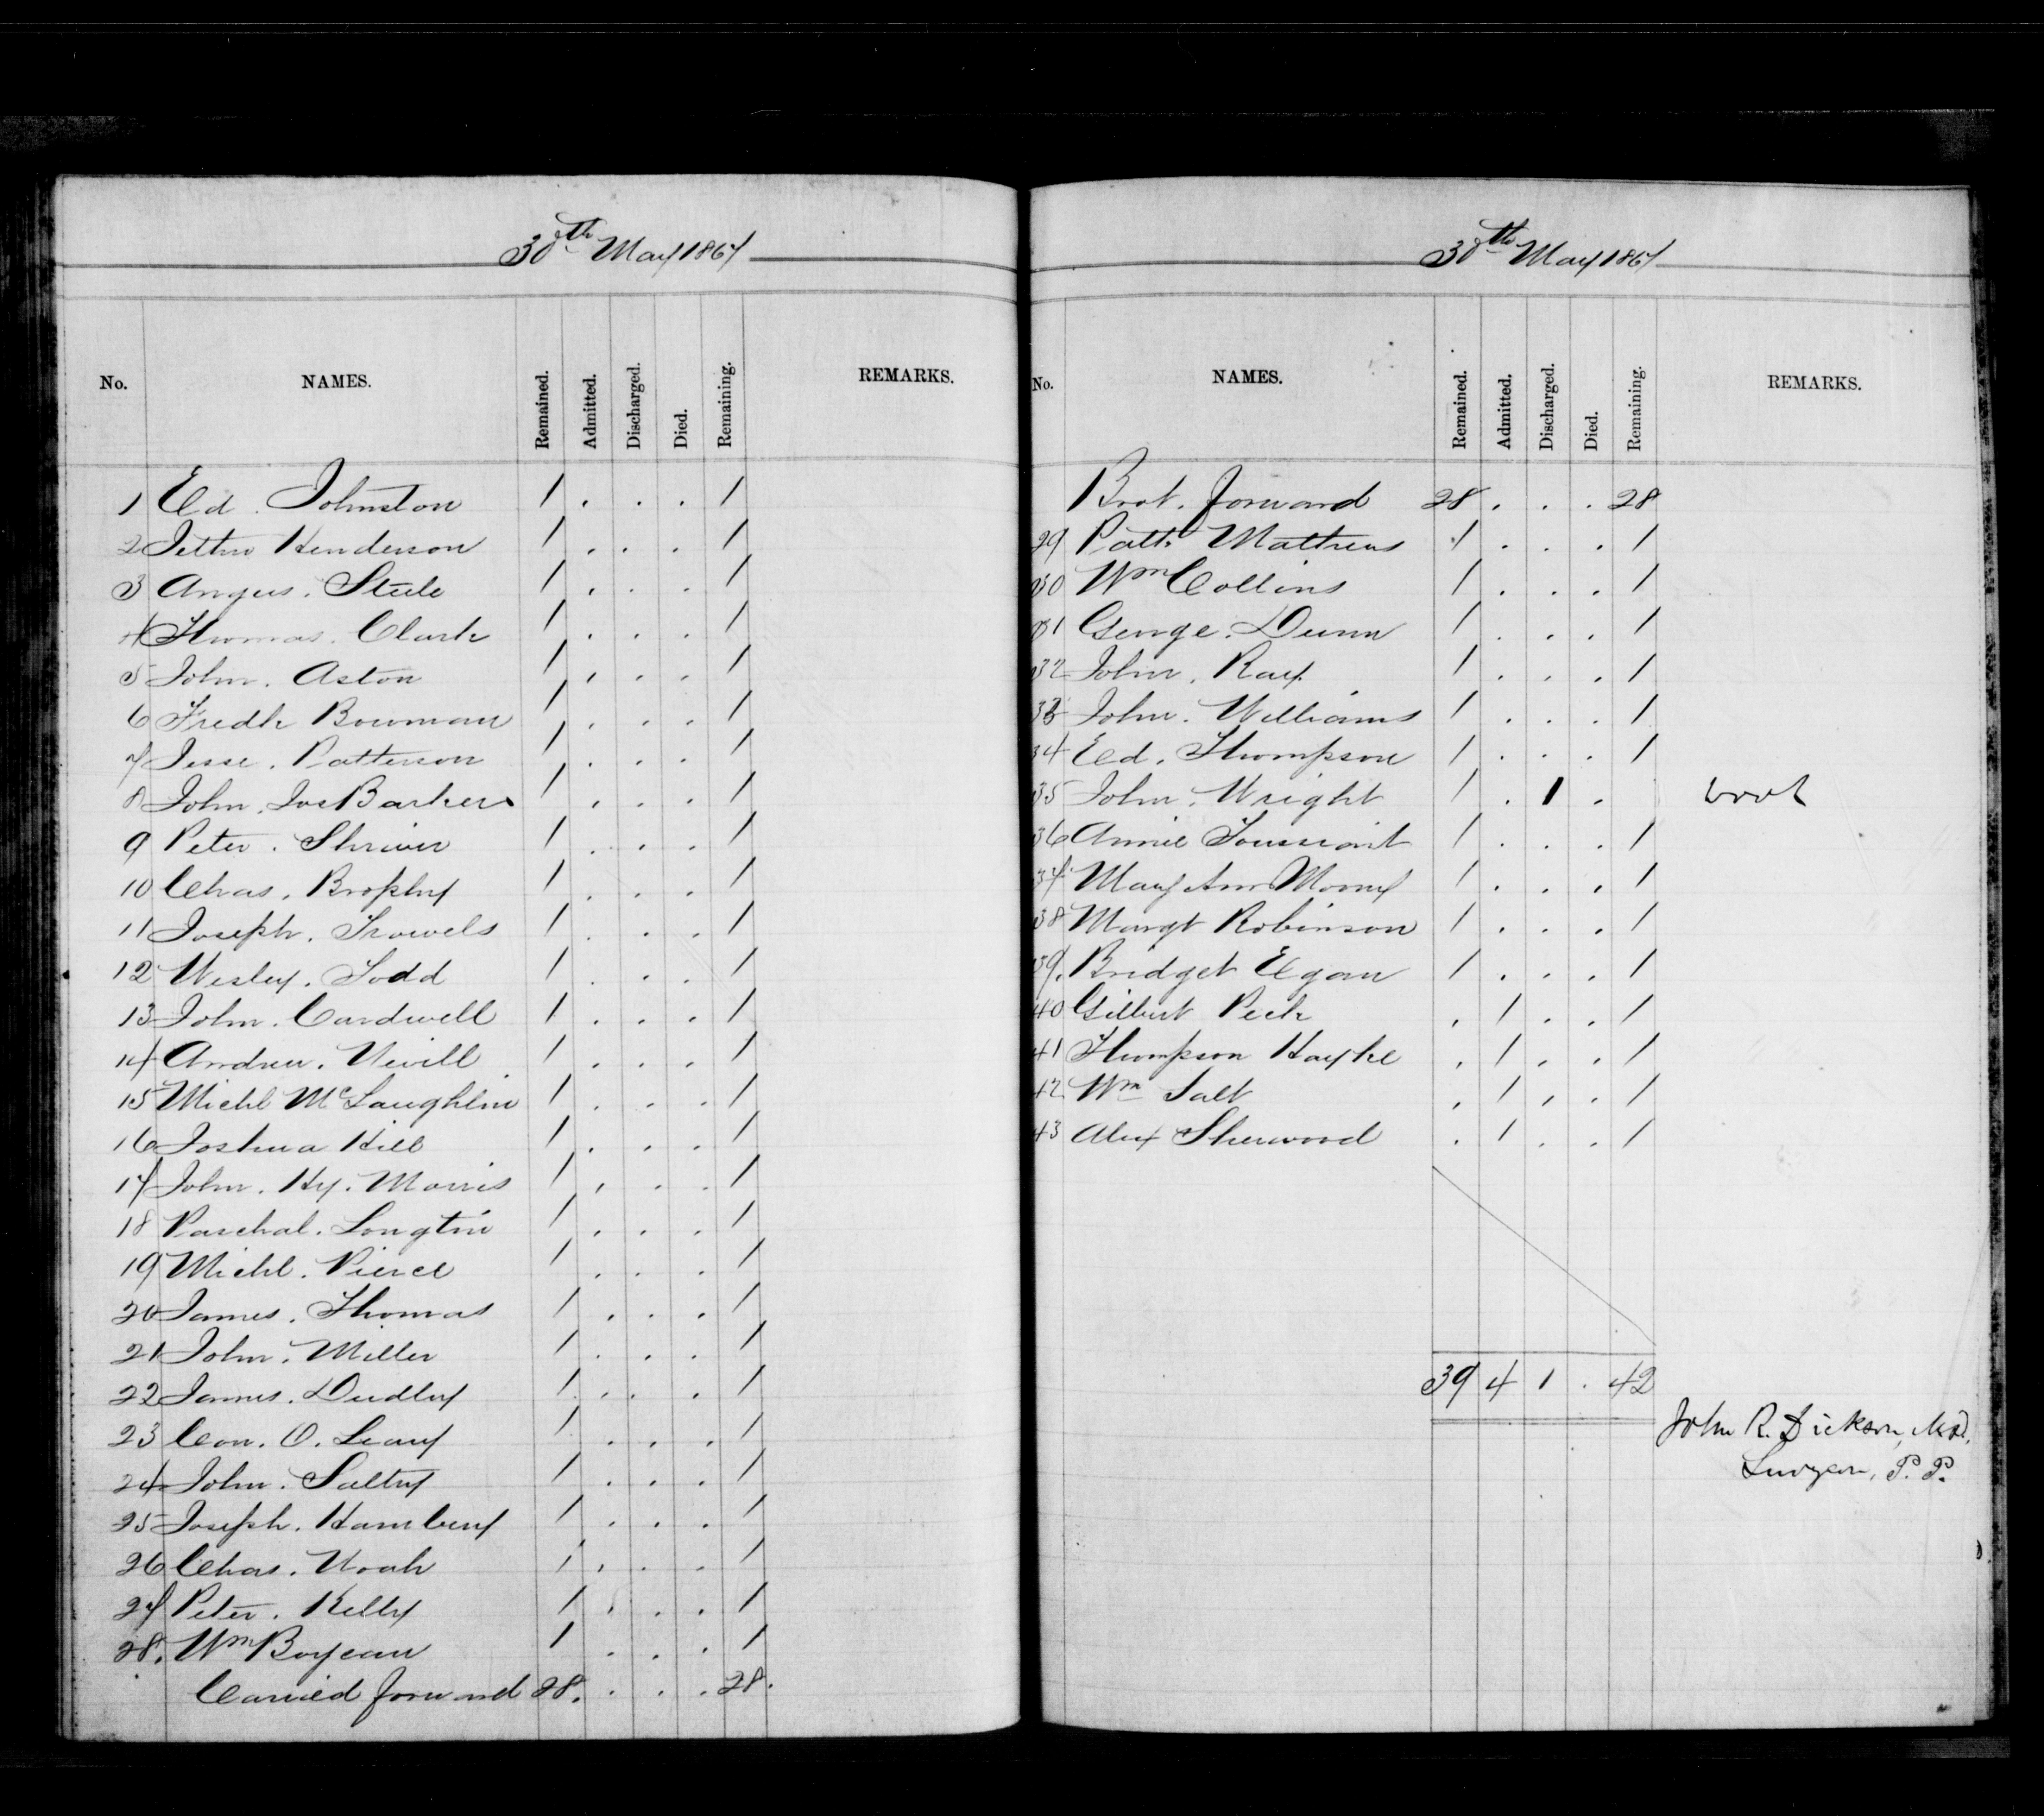 30th May 1867
No. NAMES. Remained. Admitted. Discharged. Died. Remaining. REMARKS.
1 Ed. Johnston 1 . . . 1
2 Henderson 1 . . . 1
3 Angus. Steele 1 . . . 1
4 Thomas. Clark 1 . . . 1
5 John. Aston 1 . . . 1
6 Fredk Bowman 1 . . . 1
7 Jesse. Patterson 1 . . . 1
8 John. Jos Barker 1 . . . 1
9 Peter. Shriver 1 . . . 1
10 Chas. Brophy 1 . . . 1
11 Joseph. Trowels 1 . . . 1
12 Wesley. Todd 1 . . . 1
13 John. Cardwell 1 . . . 1
14 Andrew. Nevill 1 . . . 1
15 Michl McLaughlin 1 . . . 1
16 Joshua Hill 1 . . . 1
17 John. Hy. Morris 1 . . . 1
18 Paschal. Longtin 1 . . . 1
19 Michl. Pierce 1 . . . 1
20 James. Thomas 1 . . . 1
21 John. Miller 1 . . . 1
22 James. Dudley 1 . . . 1
23 Con. O. Leary 1 . . . 1
24 John. Saltry 1 . . . 1
25 Joseph. Hambery 1 . . . 1
26 Chas. Noah 1 . . . 1
27 Peter. Kelly 1 . . . 1
28. Wm Boyeau 1 . . . 1
Carried forward 28. . . . 28.
30th May 1867
No. NAMES. Remained. Admitted. Discharged. Died. Remaining. REMARKS.
Brot. forward 28 . . . 28
29 Patk Mathews 1 . . . 1
30 Wm Collins 1 . . . 1
31 George. Dunn 1 . . . 1
32 John. Ray 1 . . . 1
33 John. Williams 1 . . . 1
34 Ed. Thompson 1 . . . 1
35 John. Wright 1 . 1 .
36 Annie Toussaint 1 . . . 1
37 Mary Ann 1 . . . 1
38 Margt Robinson 1 . . . 1
39. Bridget Egan 1 . . . 1
40 Gilbert Peck . 1 . . 1
41 Thompson . 1 . . 1
42 Wm Salt . 1 . . 1
43 Alex Sherwood . 1 . . 1
39 4 1 . 42
John R. Dickson, M.D.
Surgeon, P. P.